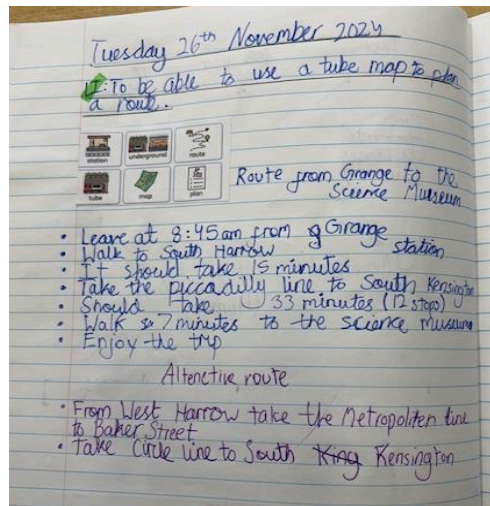 Tuesday 26th November 2024
LI: To be able to use a tube map to plan
a route.
station underground route
tube map plan
Route from Grange to the
Science Museum
• Leave at 8:45am from Grange
• Walk to South Harrow station
• It should take 15 minutes
• Take the piccadilly line to South Kensington
• Should take 33 minutes (12 stops)
• Walk 7 minutes to the science museum
• Enjoy the trip
Altenctive route
• From West Harrow take the Metropoliten line
to Baker Street
• Take Circle line to South King Kensington